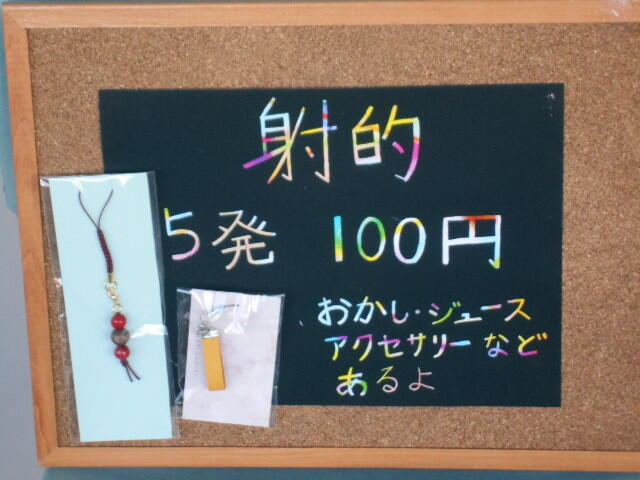 射的
5発 100円
おかし・ジュース
アクセサリーなど
あるよ